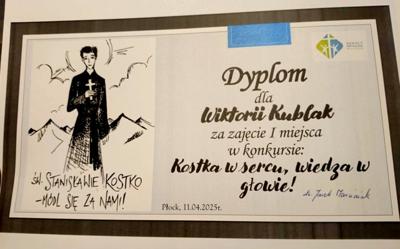 Dyplom
dla
Wiktorii Kublak
za zajęcie I miejsca
w konkursie:
Kostka w sercu, wiedza w
głowie!
Płock, 11.04.2025r.
św. STANISŁAWIE KOSTKO
-MÓDL SIĘ ZA NAMI!